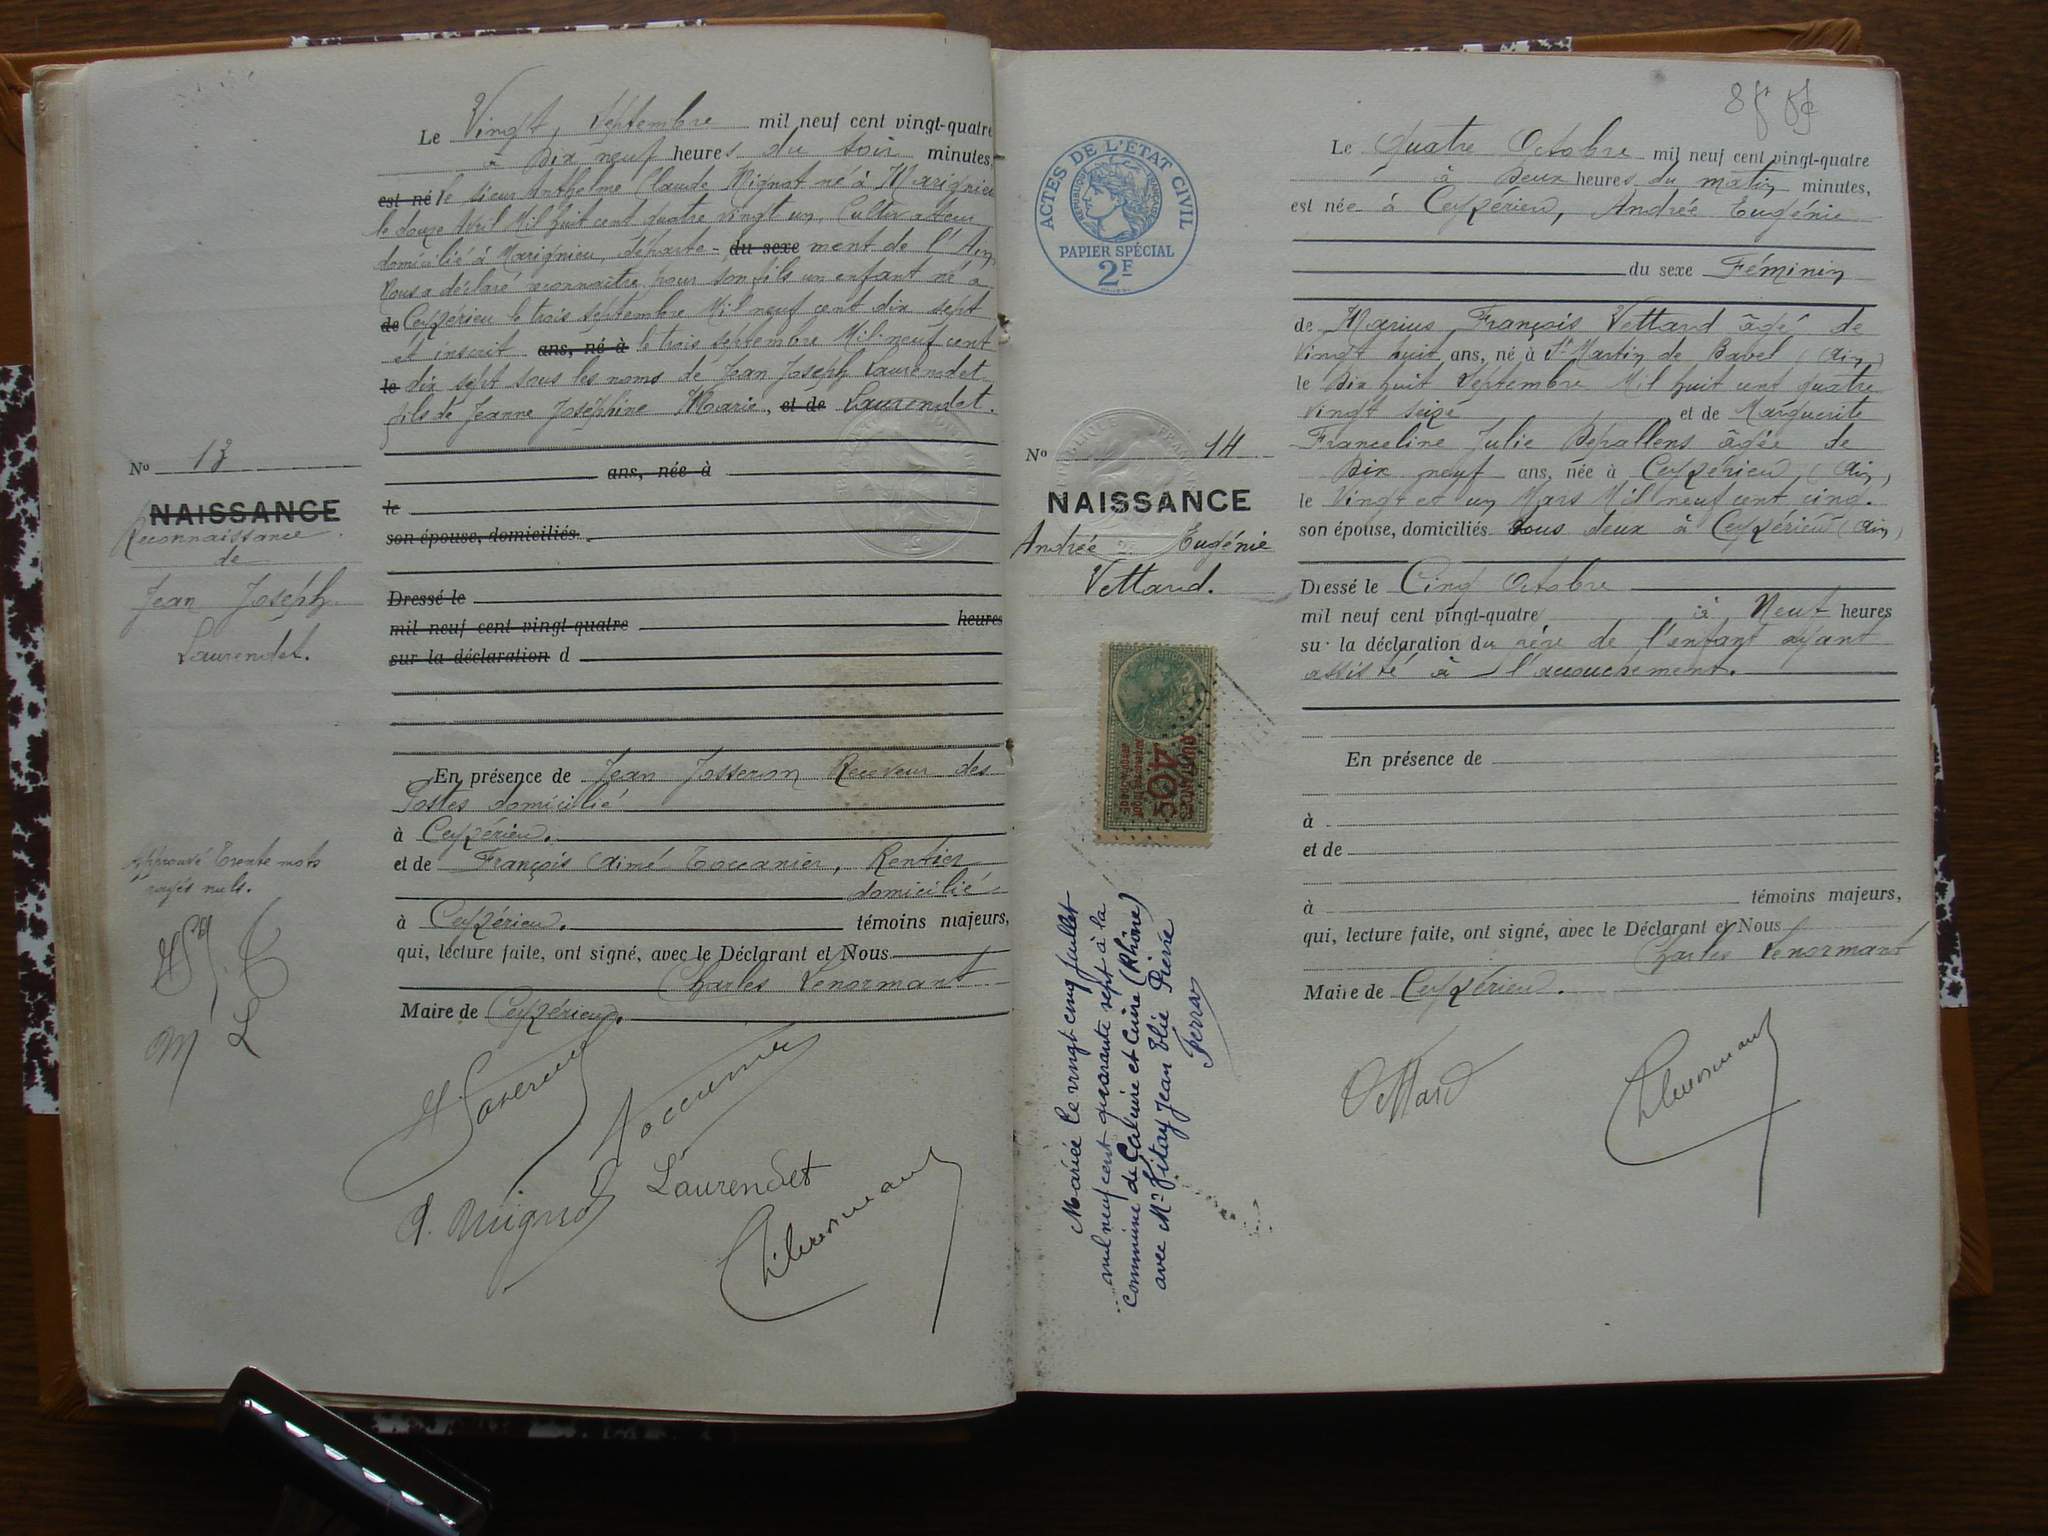 Le Vingt, Septembre mil neuf cent vingt-quatre
à Dix neuf heures du soir minutes,
est né le sieur Anthelme Claude Mignot né à Marignieu
le douze Avril Mil huit cent quatre vingt un, Cultivateur
domicilié à Marignieu, départe- du sexe ment de l'Ain,
Nous a déclaré reconnaître pour son fils un enfant né à
de Ceyzérieu le trois septembre Mil neuf cent dix sept
et inscrit ans, né à le trois septembre Mil-neuf cent
le dix sept sous les noms de Jean Joseph Laurendet
fils de Jeanne Joséphine Marie, et de Laurendet.
No 13
ans, née à
NAISSANCE
le
Reconnaissance
son épouse, domiciliés
de
Jean Joseph
Dressé le
mil neuf cent vingt-quatre heures
Laurendet.
sur la déclaration d
En présence de Jean Josseron Receveur des
Postes domicilié
à Ceyzérieu.
Approuvé Trente mots
rayés nuls.
et de François Aimé Toccanier, Rentier
domicilié
à Ceyzérieu. témoins majeurs,
qui, lecture faite, ont signé, avec le Déclarant et Nous
Charles Lenormant
Maire de Ceyzérieu.
M L
Toccanier
A. Mignot
Laurendet
Ch Lenormant
ACTES DE L'ÉTAT CIVIL
RÉPUBLIQUE FRANÇAISE
PAPIER SPÉCIAL
2F
85
Le Quatre Octobre mil neuf cent vingt-quatre
à Deux heures du matin minutes,
est née à Ceyzérieu, Andrée Eugénie
du sexe Féminin
de Marius François Vettard âgé de
vingt huit ans, né à St Martin de Bavel (Ain)
le Dix huit Septembre Mil huit cent quatre
vingt seize et de Marguerite
Franceline Julie Depallens âgée de
Dix neuf ans, née à Ceyzérieu, (Ain),
le Vingt et un Mars Mil neuf cent cinq.
son épouse, domiciliés tous deux à Ceyzérieu (Ain)
No 14
NAISSANCE
Andrée Eugénie
Vettard.
Dressé le Cinq Octobre
mil neuf cent vingt-quatre à Neuf heures
sur la déclaration du père de l'enfant ayant
assisté à l'accouchement.
QUITTANCES
40c
En présence de
à
et de
à témoins majeurs,
qui, lecture faite, ont signé, avec le Déclarant et Nous
Charles Lenormant
Maire de Ceyzérieu.
Vettard
Ch Lenormant
Mariée le vingt cinq juillet
mil neuf cent quarante sept à la
commune de Caluire et Cuire (Rhône)
avec Mr Fitay Jean Elie Pierre